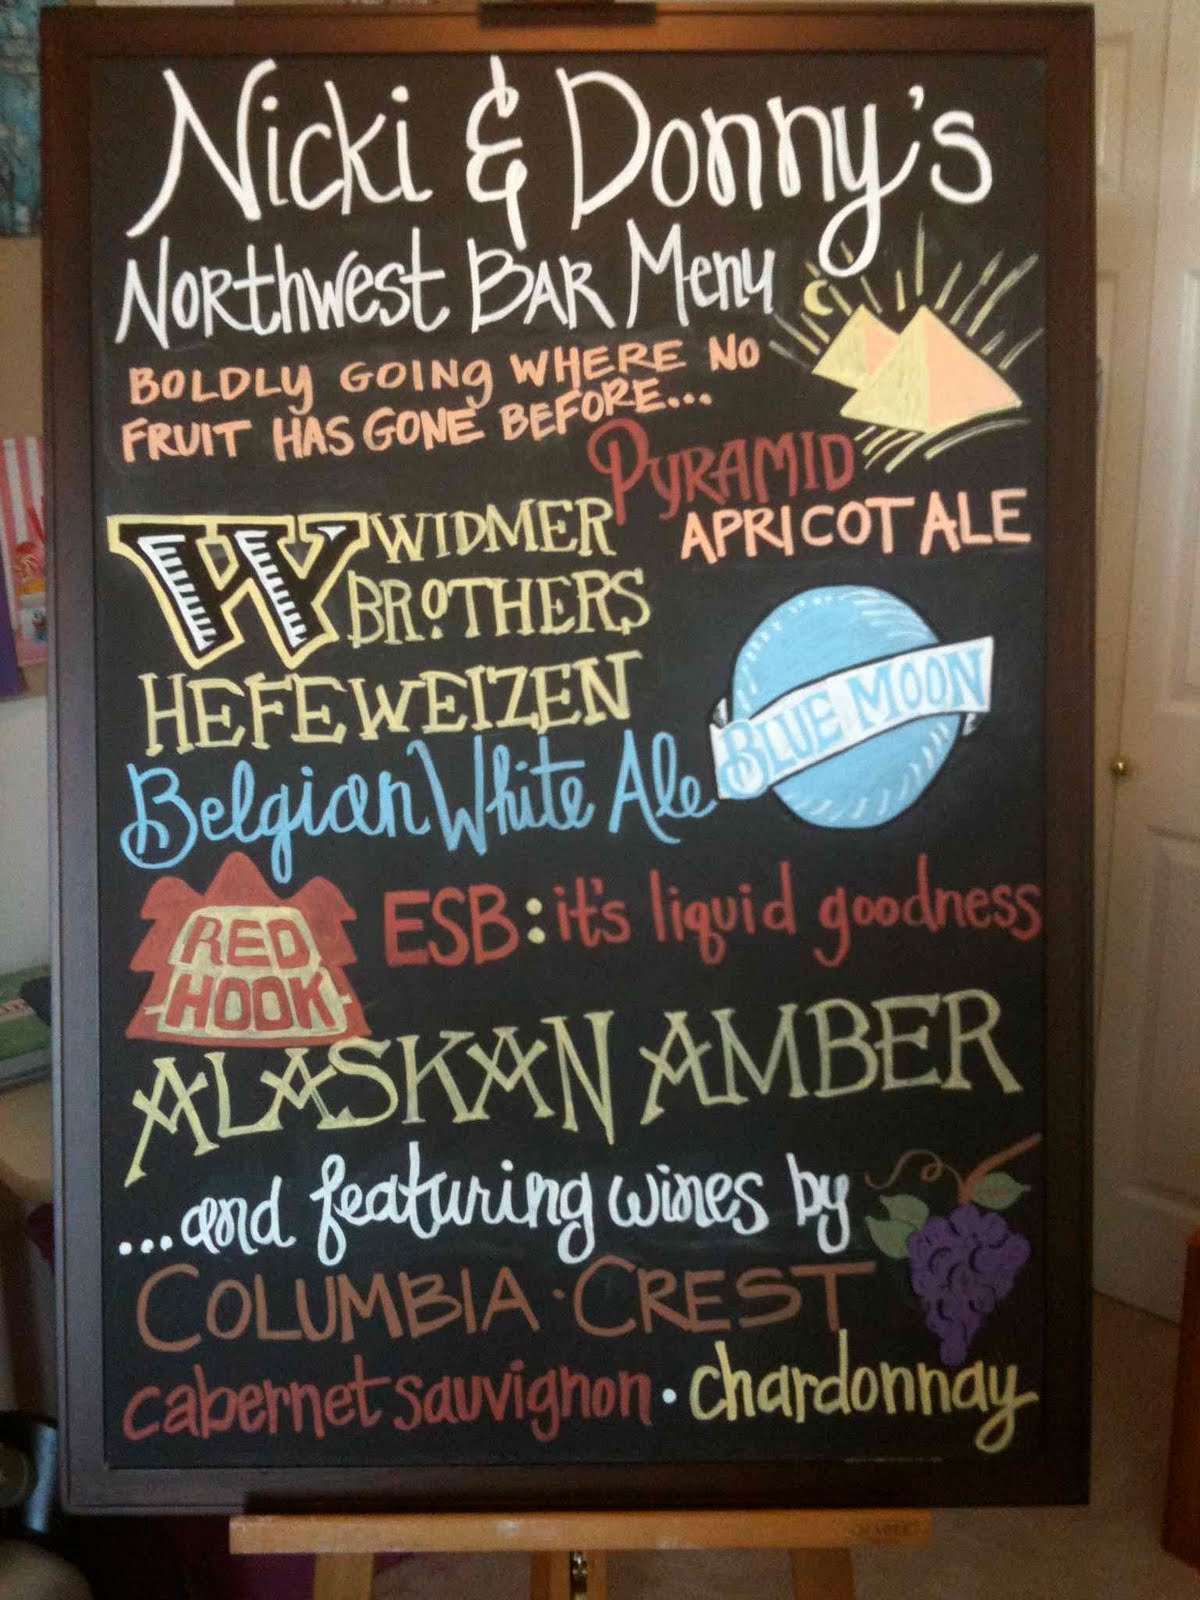 Nicki & Donny's
Northwest Bar Menu
BOLDLY GOING WHERE NO
FRUIT HAS GONE BEFORE...
PYRAMID
APRICOT ALE
W WIDMER
BROTHERS
HEFEWEIZEN
BLUE MOON
Belgian White Ale
RED
HOOK
ESB: it's liquid goodness
ALASKAN AMBER
...and featuring wines by
COLUMBIA · CREST
cabernet sauvignon · chardonnay